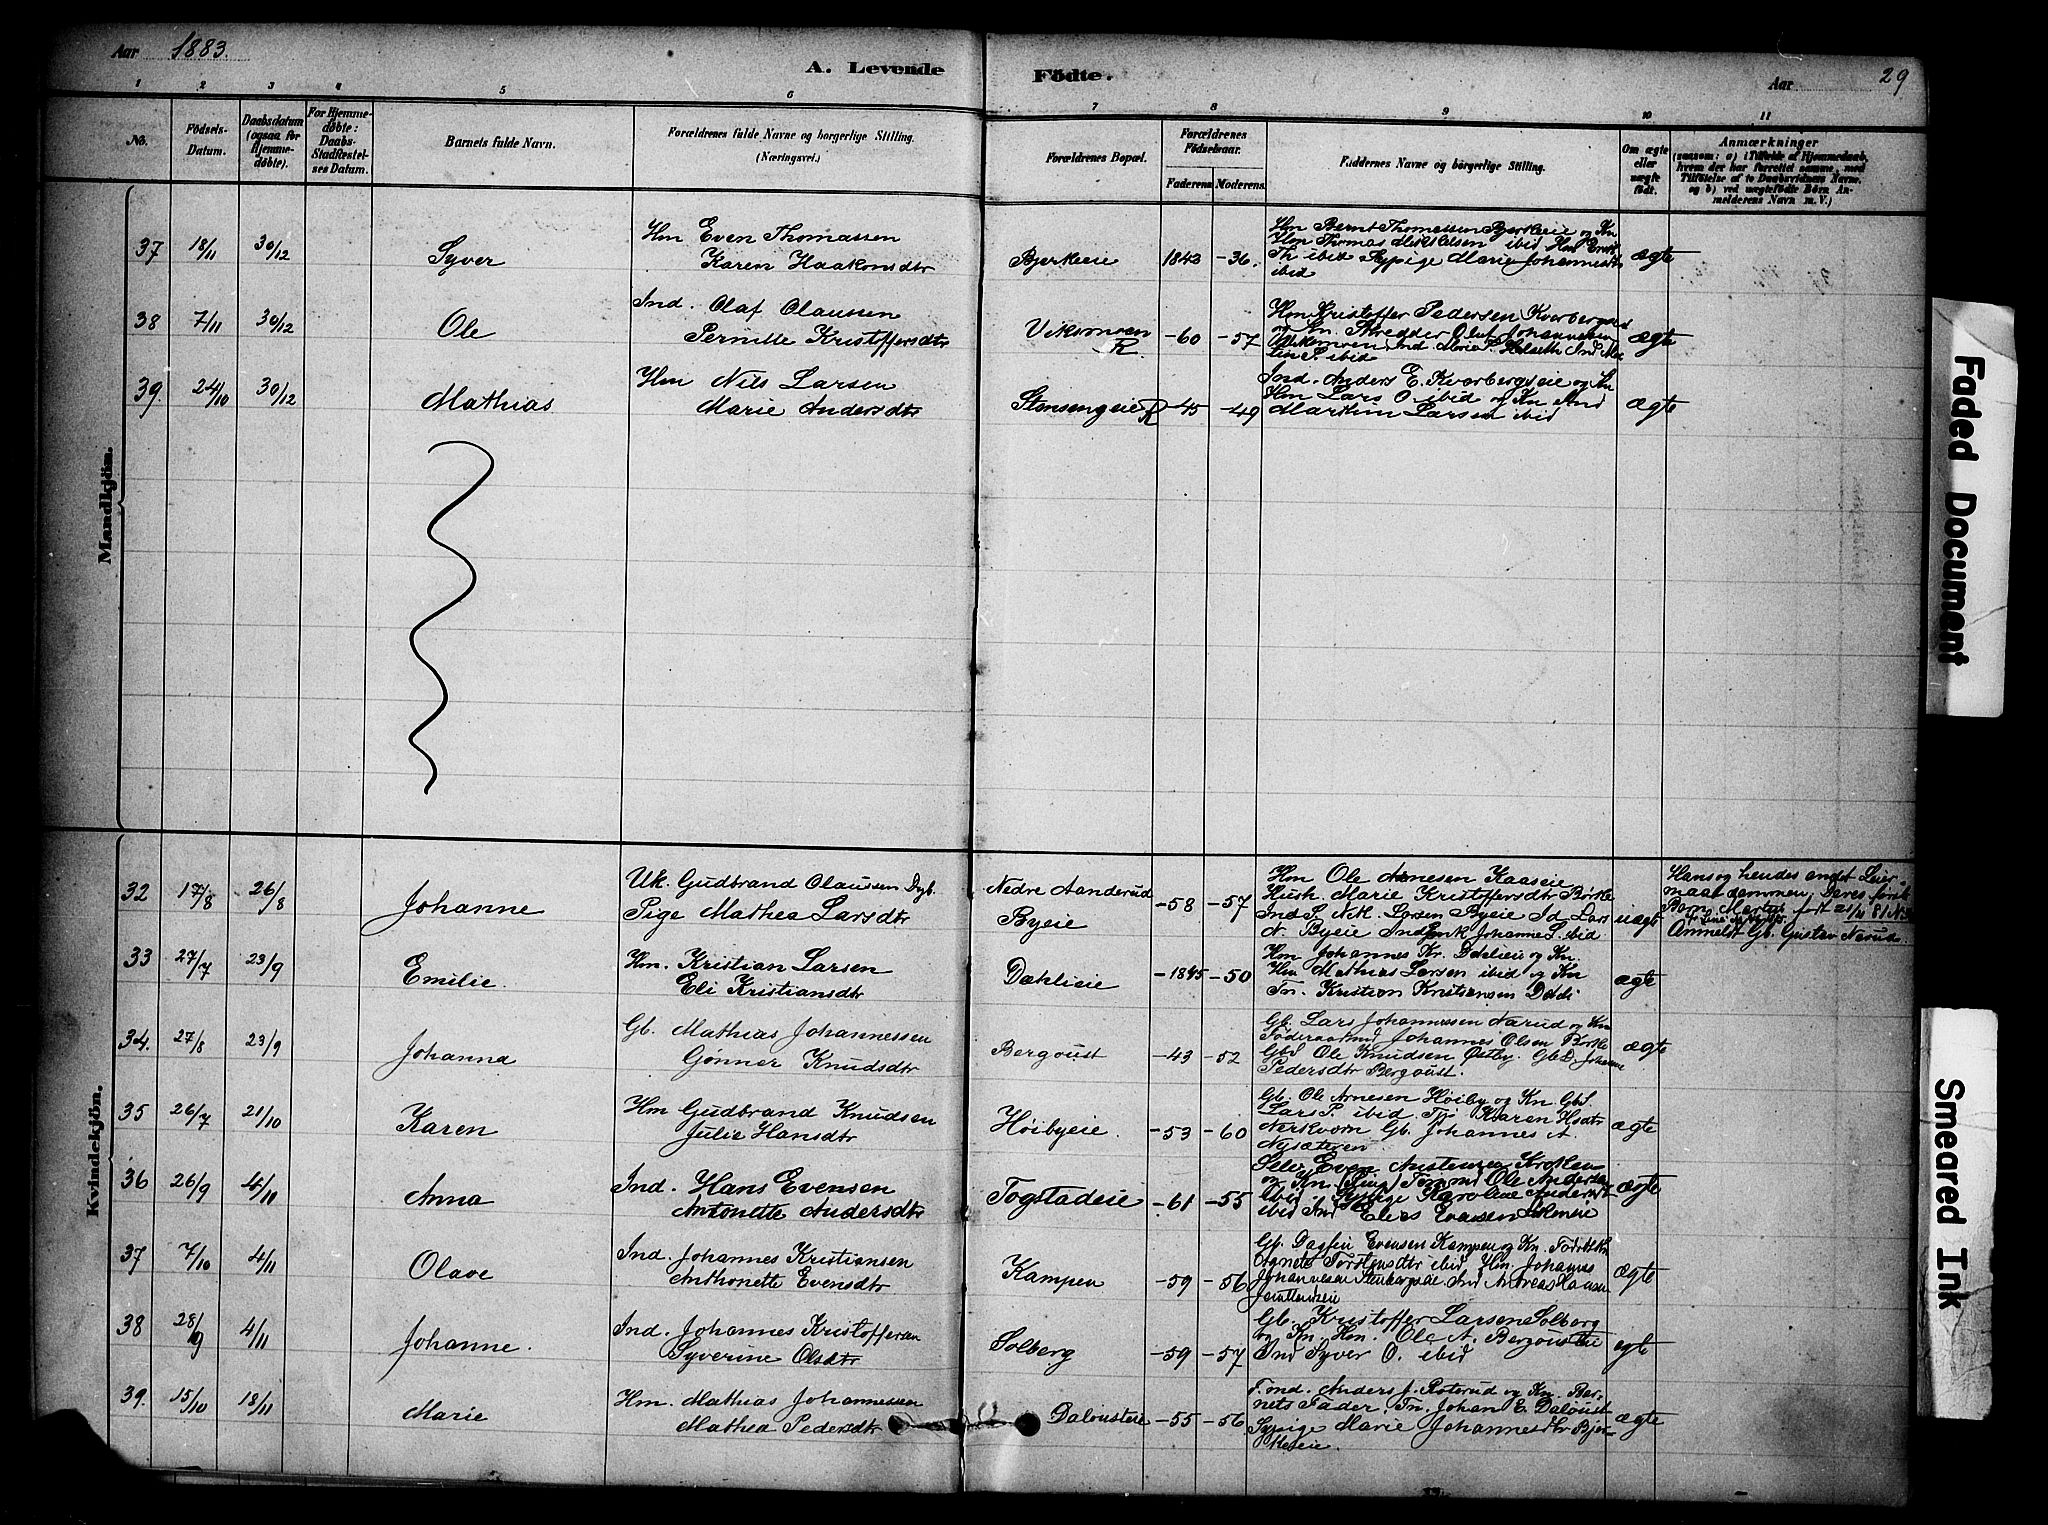 Aar 1883.
A. Levende Födte.
Aar 29
1 2 3 4 5 6 7 8 9 10 11
No.
Födsels-Datum.
Daabsdatum (ogsaa for Hjemme-døbte).
For Hjemme-døbte: Daabs-Stadfæstel-ses Datum.
Barnets fulde Navn.
Forældrenes fulde Navne og borgerlige Stilling. (Næringsvei.)
Forældrenes Bopæl.
Forældrenes Födselsaar.
Faderens Moderens
Faddernes Navne og borgerlige Stilling.
Om ægte eller uægte födt.
Anmærkninger
(saasom: a) i Tilfælde af Hjemmedaab, hvem der har forrettet samme, med Tilföielse af to Daabsvidners Navne, og b) ved uægtefödte Börn An-melderens Navn m. V.)
Mandkjön.
37 18/11 30/12 Syver
Hm Even Thomassen
Karen Haakonsdtr
Bjerkeeie 1842 -36.
Hm Bernt Thomassen Bjerkeie og Kn
Hm Thomas Mikkelsen ibid Hm Emil
Th ibid Sypige Marie Johannesdtr
ibid
ægte
38 7/11 30/12 Ole
Ind. Olaf Olaussen
Pernille Kristoffersdtr
Viksmoen R. -60 -57
Hm Kristoffer Pedersen Kvarbergseie
og Kn. Skredder Olaf Johannesen
Viksmoen Ind Marie P. Holseth Ind Mar
tin P. ibid
ægte
39. 24/10 30/12 Mathias
Hm Nils Larsen
Marie Andersdtr
Stensengeie R -45 -49
Ind. Anders E. Kvarbergseie og Kn
Hm Lars O. ibid og Kn Ind
Martin Larsen ibid
ægte
Kvindekjön.
32 17/8 26/8 Johanne
Uk. Gudbrand Olaussen Dyb.
Pige Mathea Larsdtr
Nedre Aanderud
Byeie
-58 -57
Hm Ole Arnesen Kaaseie
Hush. Marie Kristoffersdtr Børtle
Ind S. Nik. Larsen Byeie Sd Lars
N. Byeie Ind Enk Johanne L. ibid
uægt
Hans og hendes andet Leier-
maal sammen. Deres første
Barn Martea født 21/11 81 No
Anmeldt Gb. Gustav Narud.
33 27/7 23/9 Emilie.
Hm. Kristian Larsen
Eli Kristiansdtr
Dæhlieie -1845 -50
Hm Johannes Kr. Dæhlieie og Kn.
Hm Mathias Larsen ibid og Kn
Tn. Kristian Kristiansen Dæhli
ægte
34. 27/8 23/9 Johanna
Gb. Mathias Johannessen
Gønner Knudsdtr
Bergoust -43 -52
Gb. Lars Johannessen Narud og Kn
Föderaadmd Johannes Olsen Børtle
GbS Ole Knudsen Østby. GbD. Johanne
Pedersdtr Bergoust.
ægte
35 26/7 21/10 Karen
Hm Gudbrand Knudsen
Julie Hansdtr
Høibyeie. -53 -60
Gb. Ole Arnesen Høiby og Kn GbS
Lars P. ibid Tp. Karen Hsdtr
Nerkvern Gb. Johannes A.
Nysæteren
ægte
36 26/9 4/11 Anna
Ind. Hans Evensen
Antonette Andersdtr
Togstadeie -61 -55
Selv. Even Austensen Krøken
og Kn. Tømmd Ole Andersen
ibid. Sypige Karoline Andersdt
ibid Ind Elias Evensen
ægte
37 7/10 4/11 Olave
Ind. Johannes Kristiansen
Anthonette Evensdtr
Kampen -59 -56
Gb. Dagfin Evensen Kampen og Kn. Föderkn
Torstensdtr ibid Hm. Johannes
Johannesen Stenbergseie Ind Andreas Hansen
ægte
38 28/9 4/11 Johanne.
Ind. Johannes Kristoffersen
Syverine Olsdtr
Solberg -59 -57
Gb. Kristoffer Larsen Solberg
og Kn. Hm. Ole A. Bergousteie
Ind Syver O. ibid
egte
39. 15/10 18/11 Marie
Hm. Mathias Johannessen
Mathea Pedersdtr
Dalousteie -55 -56
F.md. Anders J. Roterud og Kn. Bar-
nets Fader. Tn. Johan E. Daloust
Sypige Marie Johannesdtr Bjer-
keseie.
ægte
Faded Document
Smeared Ink